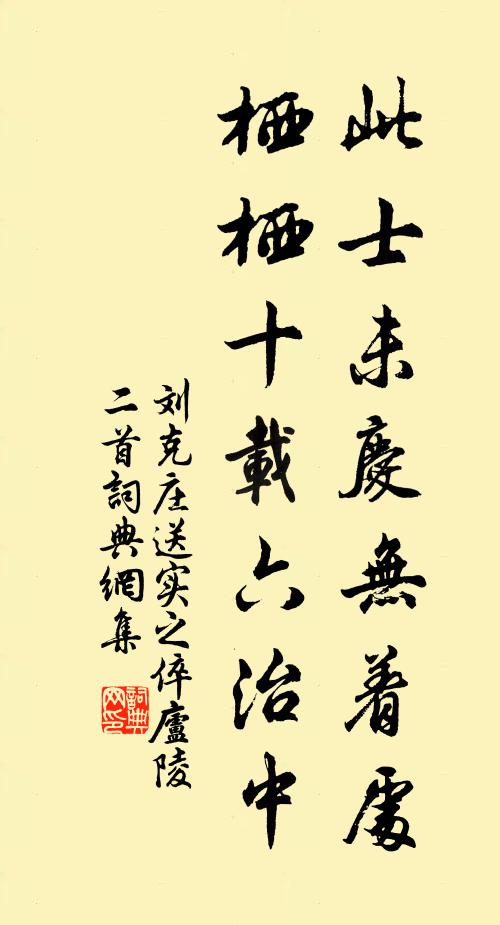 此士未慶無着處
栖栖十載六治中
刘克庄送实之倅廬陵
二首詞典網集
詞典网印